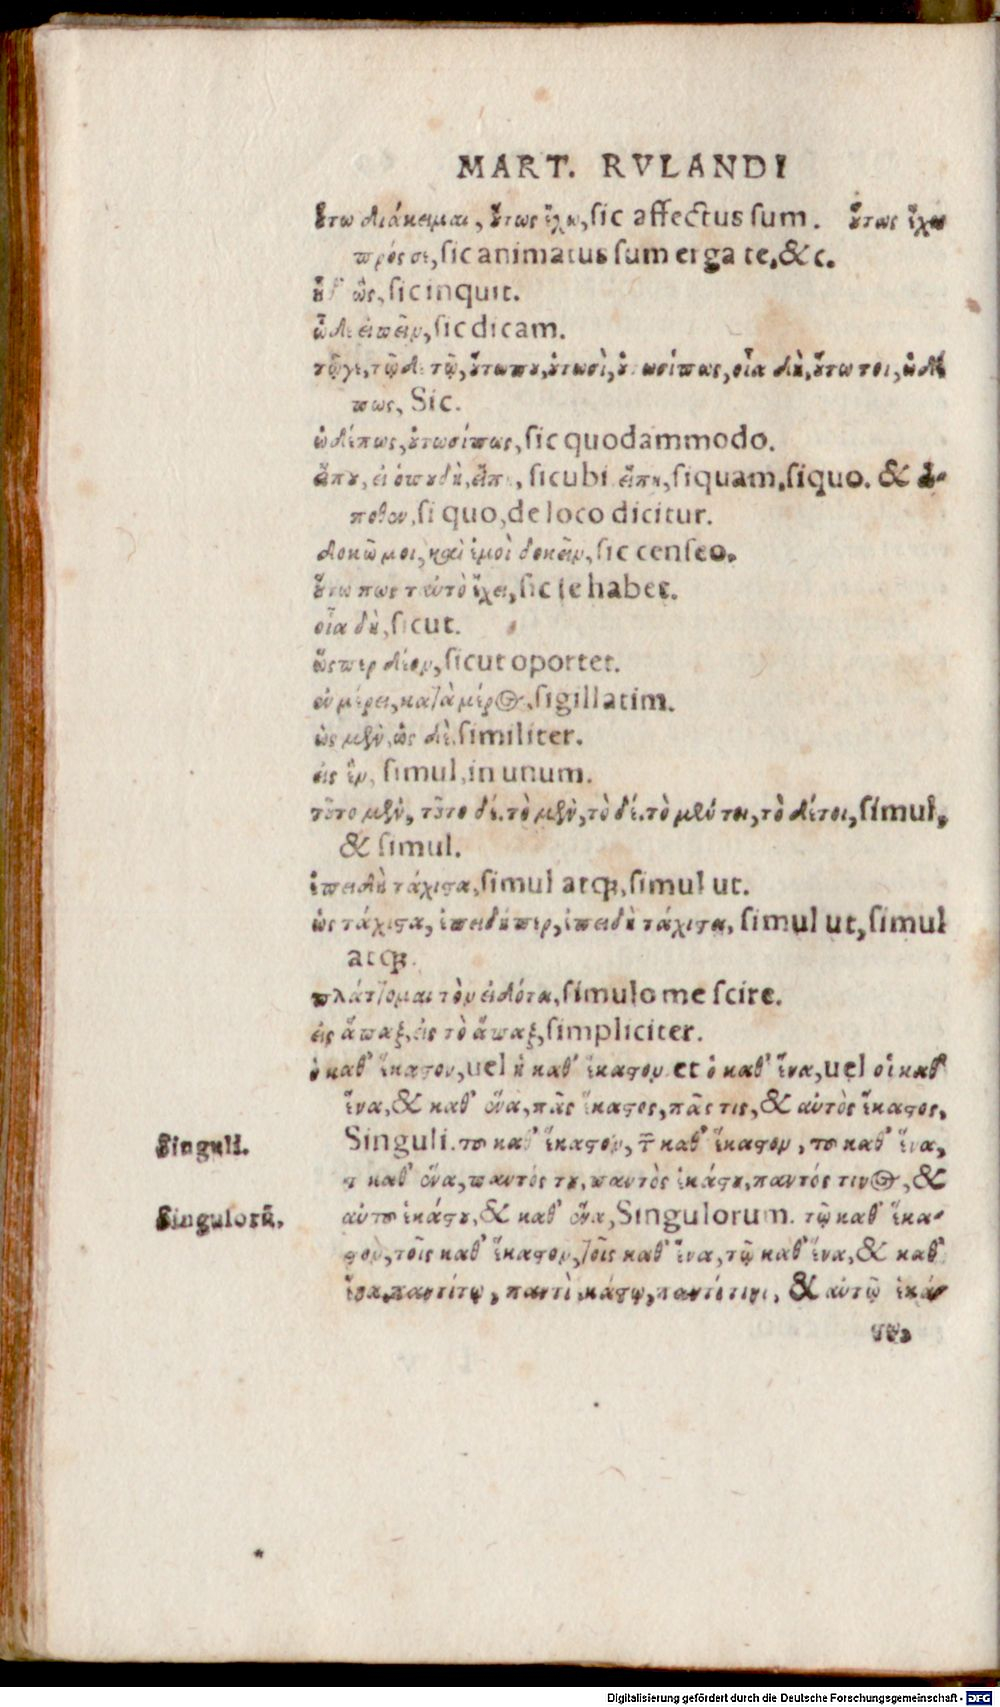 MART. RVLANDI
οὕτω διάκειμαι, οὕτως ἔχω, sic affectus sum. οὕτως ἔχω
πρός σε, sic animatus sum erga te, &c.
ὣς, sic inquit.
ὧδε εἰπεῖν, sic dicam.
τῷγε, τῷδε τῷ, οὕτωπου, οὑτωσὶ, οὑτωσίπως, οἷα δὴ, οὕτω τοι, ὡδί
πως, Sic.
ὡδίπως, οὑτωσίπως, sic quodammodo.
εἴπου, εἰ ὁπουδὴ, εἴπη, sicubi. εἴπη, siquam, siquo. & εἴ-
ποθον, si quo, de loco dicitur.
δοκῶ μοι, καὶ ἐμοὶ δοκεῖν, sic censeo.
οὕτω πως ταὐτὸ ἔχει, sic se habet.
οἷα δὴ, sicut.
ὥςπερ δέον, sicut oportet.
ἐν μέρει, κατὰ μέρος, sigillatim.
ὡς μὲν, ὡς δὲ, similiter.
εἰς ἓν, simul, in unum.
τοῦτο μὲν, τοῦτο δέ. τὸ μὲν, τὸ δέ. τὸ μέν τοι, τὸ δέτοι, simul,
& simul.
ἐπειδὴ τάχιστα, simul atq;, simul ut.
ὡς τάχιστα, ἐπειδήπερ, ἐπειδὴ τάχιστα, simul ut, simul
atq;.
πλάττομαι τὸν εἰδότα, simulo me scire.
εἰς ἅπαξ, εἰς τὸ ἅπαξ, simpliciter.
ὁ καθ' ἕκαστον, uel ἡ καθ' ἕκαστον et ὁ καθ' ἕνα, uel οἱ καθ'
ἕνα, & καθ' ἕνα, πᾶς ἕκαστος, πᾶς τις, & αὐτὸς ἕκαστος,
Singuli.
Singuli. τοῦ καθ' ἕκαστον, τ̃ καθ' ἕκαστον, τοῦ καθ' ἕνα,
τ̃ καθ' ἕνα, παντός του, παντὸς ἑκάστου, παντός τινος, &
Singulorū.
αὐτοῦ ἑκάστου, & καθ' ἕνα, Singulorum. τῷ καθ' ἕκα-
στον, τοῖς καθ' ἕκαστον, τοῖς καθ' ἕνα, τῷ καθ' ἕνα, & καθ'
ἕνα, παντίτῳ, παντὶ ἑκάστῳ, παντίτινι, & αὐτῷ ἑκά-
στῳ,